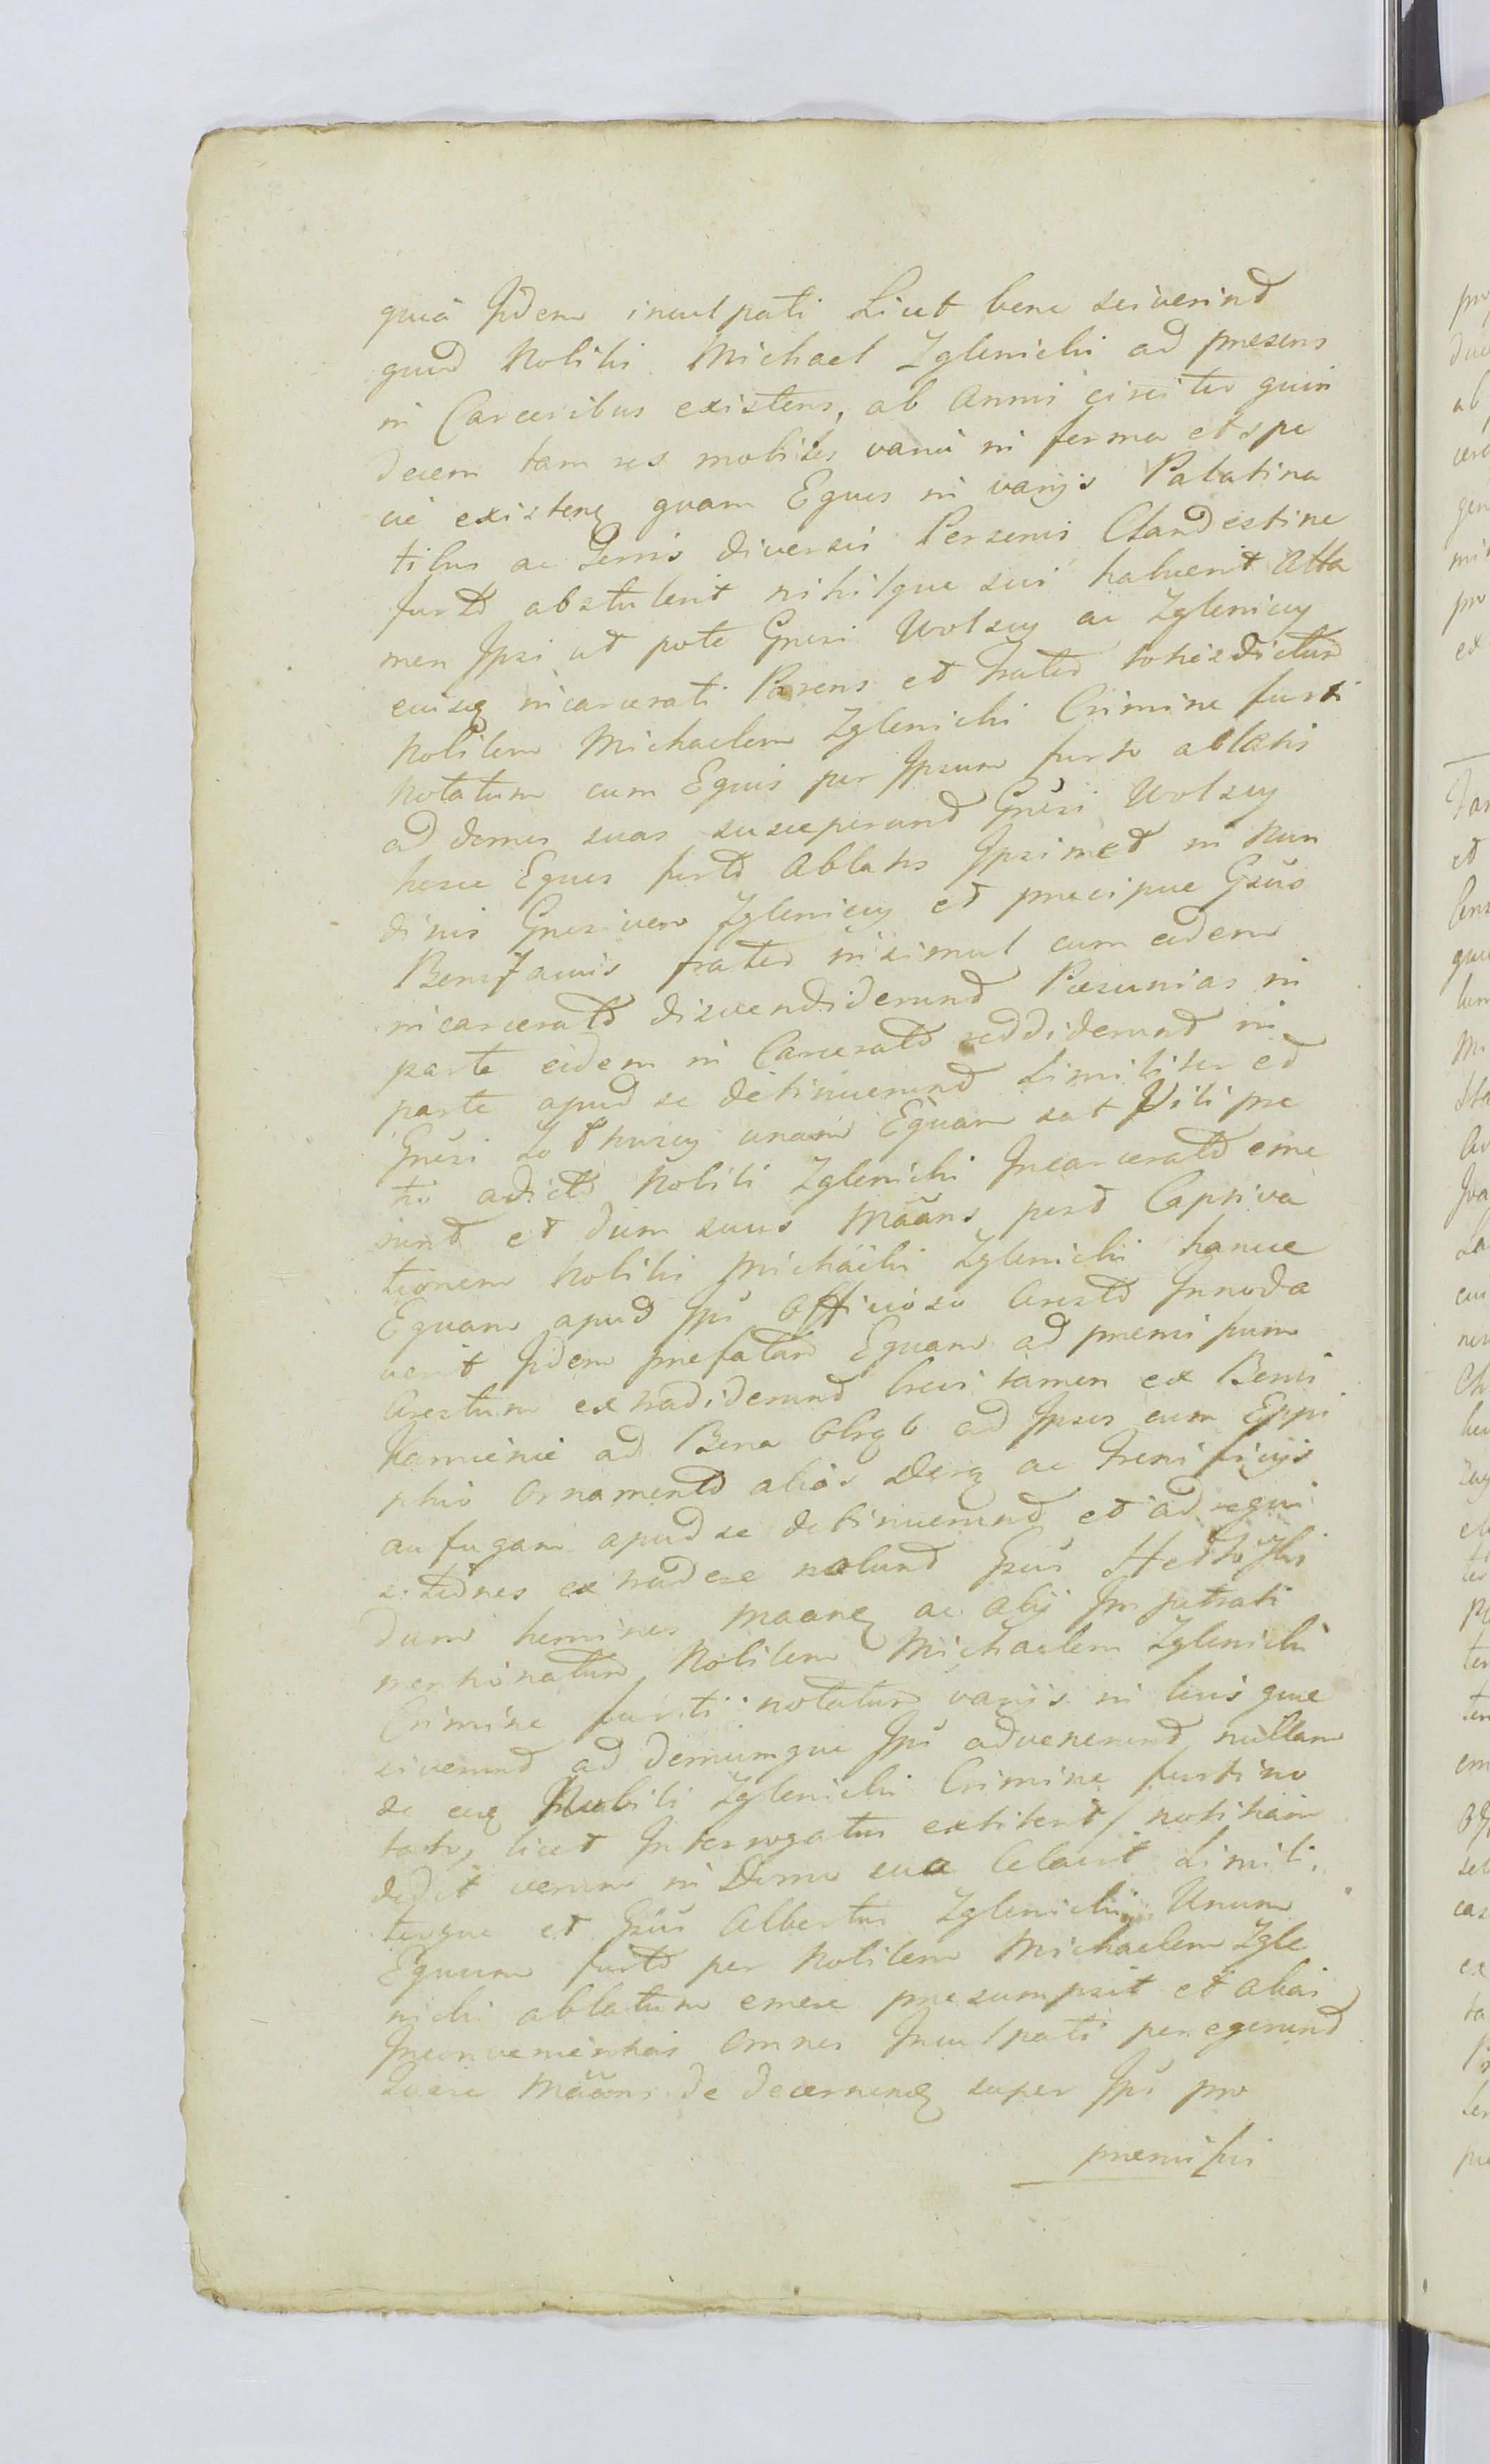 quia Jidem inculpati Licet bene sciverint
quod Nobilis Michael Zglenicki ad praesens
in Carceribus existens, ab Annis circiter quin
decem tam res mobiles varia in forma et spe
cie existenq quam Equos in varijs Palatina
tibus ac Terris diversis Personis Clandestine
furto abstulerit nihilque sui habuerit Atta
men Jpsi ut pote Gnesi Wolscy ac Zgleniccy
cuisq incarcerati Parens et Frater totiesdictum
Nobilem Michaelem Zglenicki Crimine furti
Notatum cum Equis per Jpsum furto ablatis
ad domos suas susceperunt Gnesi Wolscy
hosce Equos furto Ablatos Jpsimet in Nun
dinis Gnesi vero Zglenicey et praecipue Gsus
Bonifacius frater insimul cum eodem
incarcerato disvendiderunt Pecunias in
parte eidem in Carcerato reddiderunt in
parte apud se detinuerunt Similiter et
Gnesi unam Equam sat Vili pre
tio adicto Nobili Zglenicki Jncarcerato eme
runt et dum suus Maans post Captiva
tionem Nobilis Michaelis Zglenicki hance
Equam apud Jps Officioso Aresto Jnnoda
verit Jidem praefatam Equam ad praemissum
Arestum extradiderunt brevi tamen ex Bonis
Kamienie ad Bona ad Jpsos cum Eppi
phio Ornamento alias ac
aufugam apud se detinuerunt et ad requi
sitiones extradere nolunt Gsus
dum homines Maanq ac alij Jmpetrati
mentionatum Nobilem Michaelem Zglenicki
Crimine furti notatum varijs in locis quae
siverunt ad domumque Jps advenerunt nullam
de eoq Nobili Zglenicki Crimine furti no
tato, licet Jnterrogatus extiterit / notitiam
dedit verum in Domo sua Celavit Simili,
terque et Gsus Albertus Zglenicki Unum
Equum furto per Nobilem Michaelem Zgle
nicki ablatum emere praesumpsit et alias
Jnconvenientias Omnes Jnculpati peregerunt
Quare Maans de decernenq super Jps pro
praemissis